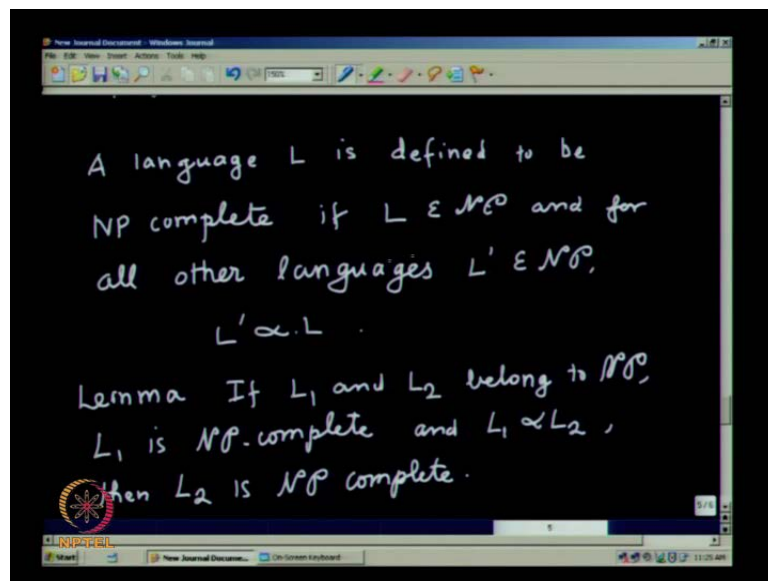 New Journal Document - Windows Journal
File Edit View Insert Actions Tools Help
A language L is defined to be
NP complete if L ε NP and for
all other languages L' ε NP,
L' ∝ L .
Lemma If L₁ and L₂ belong to NP,
L₁ is NP-complete and L₁ ∝ L₂ ,
then L₂ is NP complete.
5/6
5
NPTEL
Start New Journal Docume... On-Screen Keyboard 11:25 AM